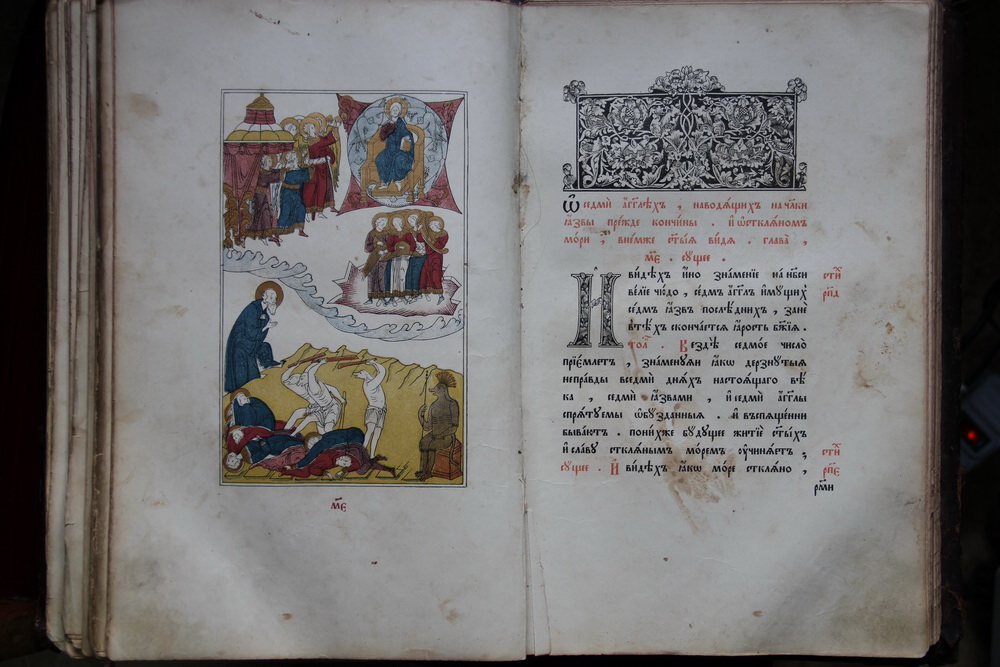 м҃є
Ѡ седми́ а҆́гг҃лѣхъ , наводѧ́щихъ на чл҃ки
ꙗ҆́звы пре́жде кончи́ны . и҆ ѡ҆ стклѧ́ном
мо́ри , в не́мже ст҃ы́ѧ ви́дѧ . глава̀ ,
м҃є . сꙋ́щее .
И҆ ви́дѣхъ и҆́но зна́менїе на нб҃си ст҃и́
ве́лїе чю́до , се́дмъ а҆́гг҃лъ и҆мꙋ́щих р҃п҃д
се́дмъ ꙗ҆́звъ послѣ́днихъ , занѐ
в тѣ́хъ сконча́етсѧ ꙗ҆́рость бж҃їѧ .
то́л . Вездѣ̀ седмо́е число̀
прїе́млетъ , зна́менꙋѧ ꙗ҆́кѡ дерзнꙋ́тыѧ
непра́вды в седмѝ днѧ́хъ настоѧ́щаго вѣ́
ка , седми́ ꙗ҆́звами , и҆ седмѝ а҆́гг҃лы
спрѧ́тꙋемы ѡ҆бꙋ́зданныѧ . и҆ въспѧще́нни
быва́ютъ . пони́хже бꙋ́дꙋщее житїѐ ст҃ы́хъ
и҆ сла́вꙋ стклѧ́нымъ мо́ремъ ᲂу҆чинѧ́етъ , ст҃и́
сꙋ́щее . И҆ ви́дѣхъ ꙗ҆́кѡ мо́ре стклѧ́но , р҃п҃є
рм҃и